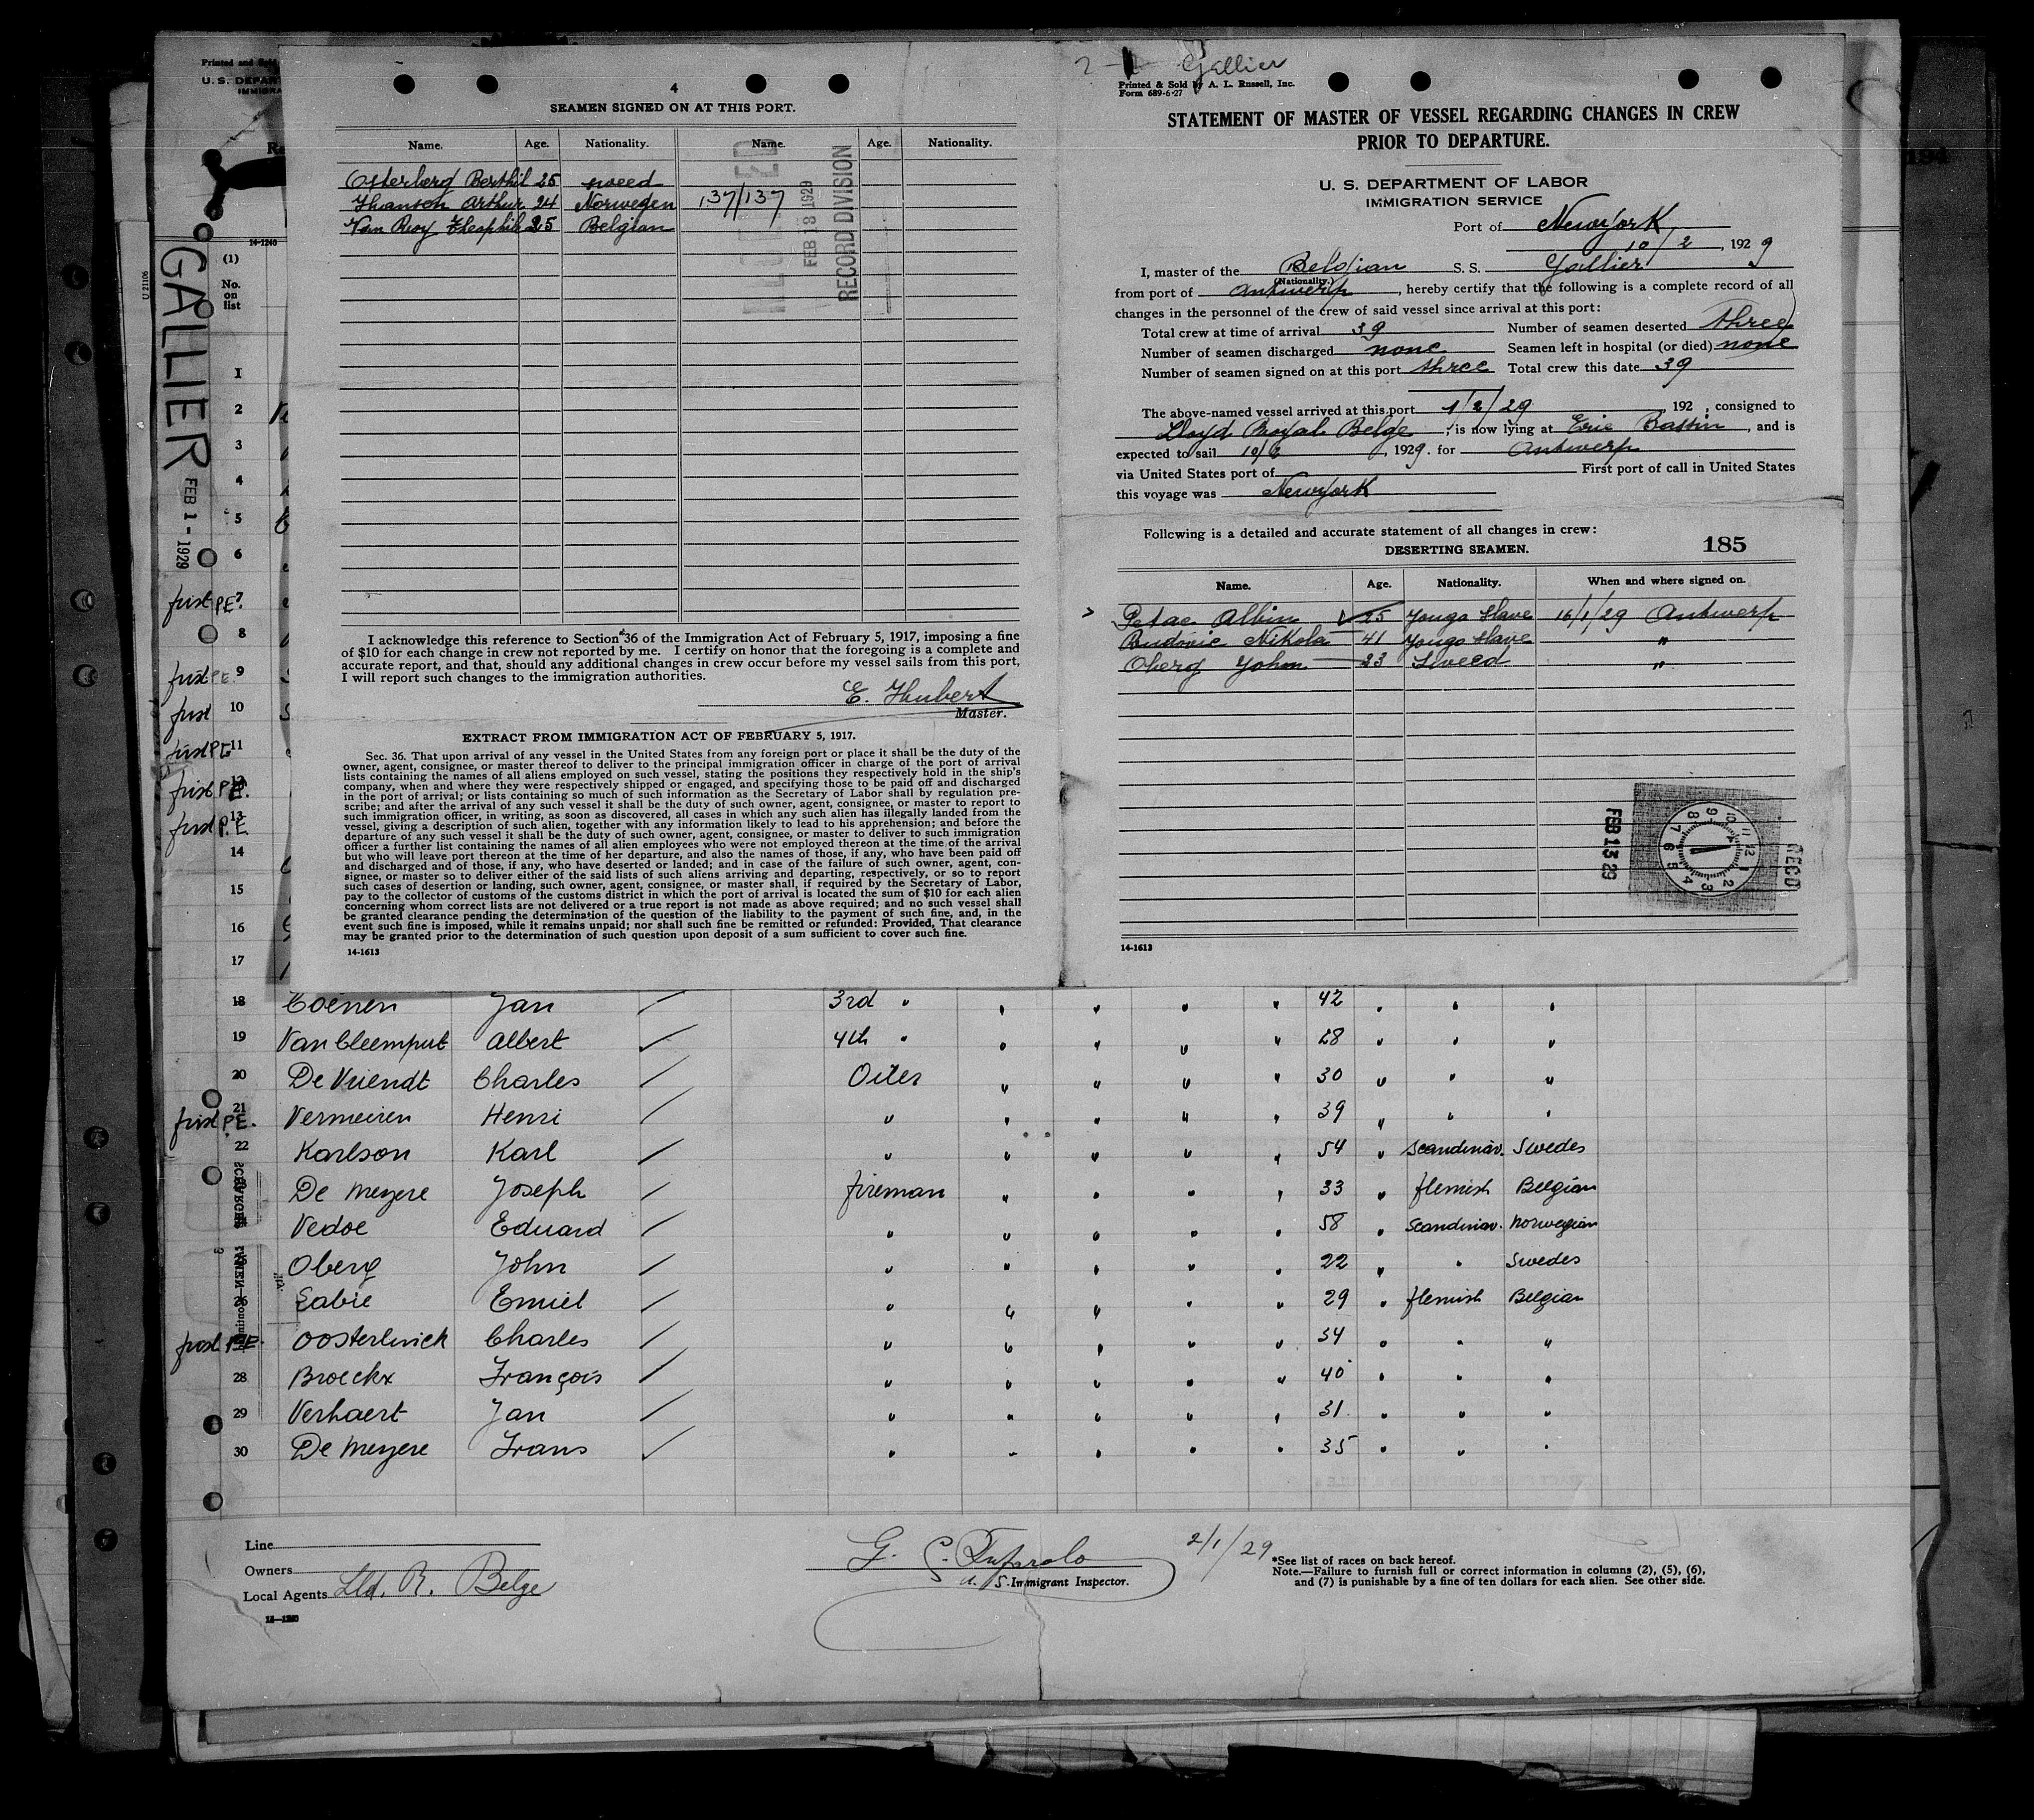 Printed and Sold
U. S. DEPAR
IMMIGRA
14-1240
U 21106
(1)
No.
on
list
GALLIER
FEB 1 - 1929
I
2
3
4
5
6
first PE 7
8
first PE 9
first 10
first PE 11
first P.E. 12
first P.E. 13
14
15
16
17
4
SEAMEN SIGNED ON AT THIS PORT.
Name. Age. Nationality. Name. Age. Nationality.
Osterberg Berthil 25 sweed
Hanson Arthur 24 Norwegen 137/137
Van Roy Theophile 25 Belgian
FEB 18 1929
RECORD DIVISION
I acknowledge this reference to Section 36 of the Immigration Act of February 5, 1917, imposing a fine
of $10 for each change in crew not reported by me. I certify on honor that the foregoing is a complete and
accurate report, and that, should any additional changes in crew occur before my vessel sails from this port,
I will report such changes to the immigration authorities.
E. Hubert
Master.
EXTRACT FROM IMMIGRATION ACT OF FEBRUARY 5, 1917.
Sec. 36. That upon arrival of any vessel in the United States from any foreign port or place it shall be the duty of the
owner, agent, consignee, or master thereof to deliver to the principal immigration officer in charge of the port of arrival
lists containing the names of all aliens employed on such vessel, stating the positions they respectively hold in the ship's
company, when and where they were respectively shipped or engaged, and specifying those to be paid off and discharged
in the port of arrival; or lists containing so much of such information as the Secretary of Labor shall by regulation pre-
scribe; and after the arrival of any such vessel it shall be the duty of such owner, agent, consignee, or master to report to
such immigration officer, in writing, as soon as discovered, all cases in which any such alien has illegally landed from the
vessel, giving a description of such alien, together with any information likely to lead to his apprehension; and before the
departure of any such vessel it shall be the duty of such owner, agent, consignee, or master to deliver to such immigration
officer a further list containing the names of all alien employees who were not employed thereon at the time of the arrival
but who will leave port thereon at the time of her departure, and also the names of those, if any, who have been paid off
and discharged and of those, if any, who have deserted or landed; and in case of the failure of such owner, agent, con-
signee, or master so to deliver either of the said lists of such aliens arriving and departing, respectively, or so to report
such cases of desertion or landing, such owner, agent, consignee, or master shall, if required by the Secretary of Labor,
pay to the collector of customs of the customs district in which the port of arrival is located the sum of $10 for each alien
concerning whom correct lists are not delivered or a true report is not made as above required; and no such vessel shall
be granted clearance pending the determination of the question of the liability to the payment of such fine, and, in the
event such fine is imposed, while it remains unpaid; nor shall such fine be remitted or refunded: Provided, That clearance
may be granted prior to the determination of such question upon deposit of a sum sufficient to cover such fine.
14-1613
Gallier
Printed & Sold by A. L. Russell, Inc.
Form 689-6-27
STATEMENT OF MASTER OF VESSEL REGARDING CHANGES IN CREW
PRIOR TO DEPARTURE.
U. S. DEPARTMENT OF LABOR
IMMIGRATION SERVICE
Port of New york
10/2, 1929
I, master of the Belgian S. S. Gallier
(Nationality.)
from port of Antwerp, hereby certify that the following is a complete record of all
changes in the personnel of the crew of said vessel since arrival at this port:
Total crew at time of arrival 39 Number of seamen deserted three
Number of seamen discharged none Seamen left in hospital (or died) none
Number of seamen signed on at this port three Total crew this date 39
The above-named vessel arrived at this port 1/2/29, 192 , consigned to
Lloyd Royal Belge, is now lying at Erie Bassin, and is
expected to sail 10/2, 1929. for Antwerp
via United States port of First port of call in United States
this voyage was New york
Following is a detailed and accurate statement of all changes in crew:
DESERTING SEAMEN. 185
Name. Age. Nationality. When and where signed on.
Petac Albin 25 Yougo Slave 16/1/29 Antwerp
Budonic Nikola 41 Yougo Slave "
Oberg John 23 Sweed "
FEB 13 29
RECD
18 Coenen Jan 3rd " " " " " 42 " " "
19 Van Cleemput Albert 4th " " " " " 28 " " "
20 De Vriendt Charles Oiler " " " " 30 " " "
first PE. 21 Vermeiren Henri " " " " " 39 " " "
22 Karlson Karl " " " " " 54 " Scandinav. Swedes
De Meyere Joseph fireman " " " " 33 " flemish Belgian
Vedoe Eduard " " " " " 58 " Scandinav. Norwegian
Oberg John " " " " " 22 " " Swedes
26 Sabie Emiel " " " " " 29 " flemish Belgian
first PE. Oosterlinck Charles " " " " " 34 " " "
28 Broeckx François " " " " " 40 " " "
29 Verhaert Jan " " " " " 31 " " "
30 De Meyere Frans " " " " " 35 " " "
Line
Owners
Local Agents Lld. R. Belge
14-1240
G.
Immigrant Inspector.
2/1/29
*See list of races on back hereof.
Note.—Failure to furnish full or correct information in columns (2), (5), (6),
and (7) is punishable by a fine of ten dollars for each alien. See other side.